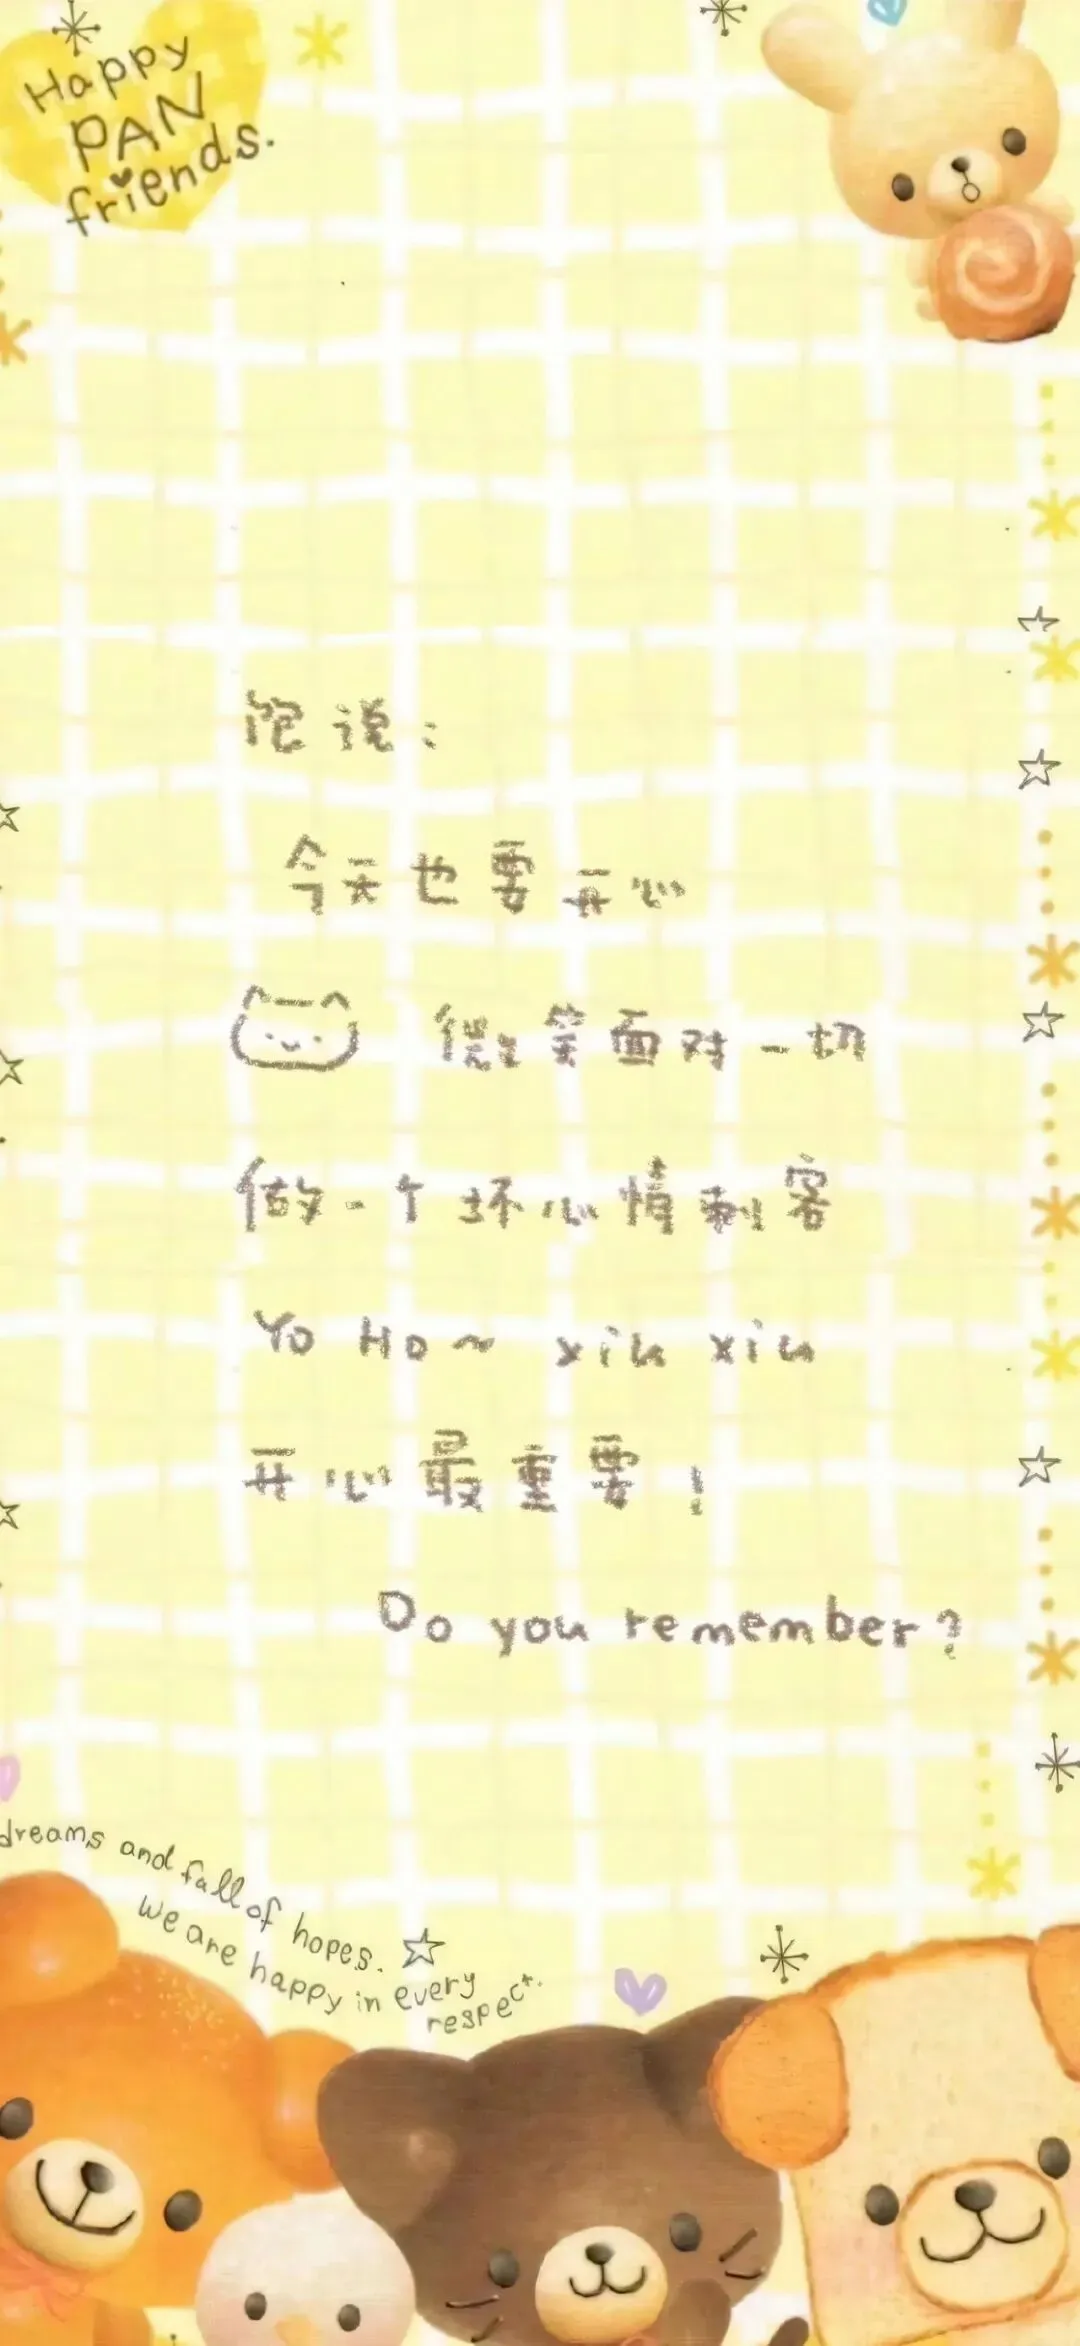 Happy
PAN
friends.
饱说：
今天也要开心
微笑面对一切
做一个坏心情刺客
Yo Ho~ xiu xiu
开心最重要！
Do you remember?
dreams and fall of hopes.
we are happy in every
respect.